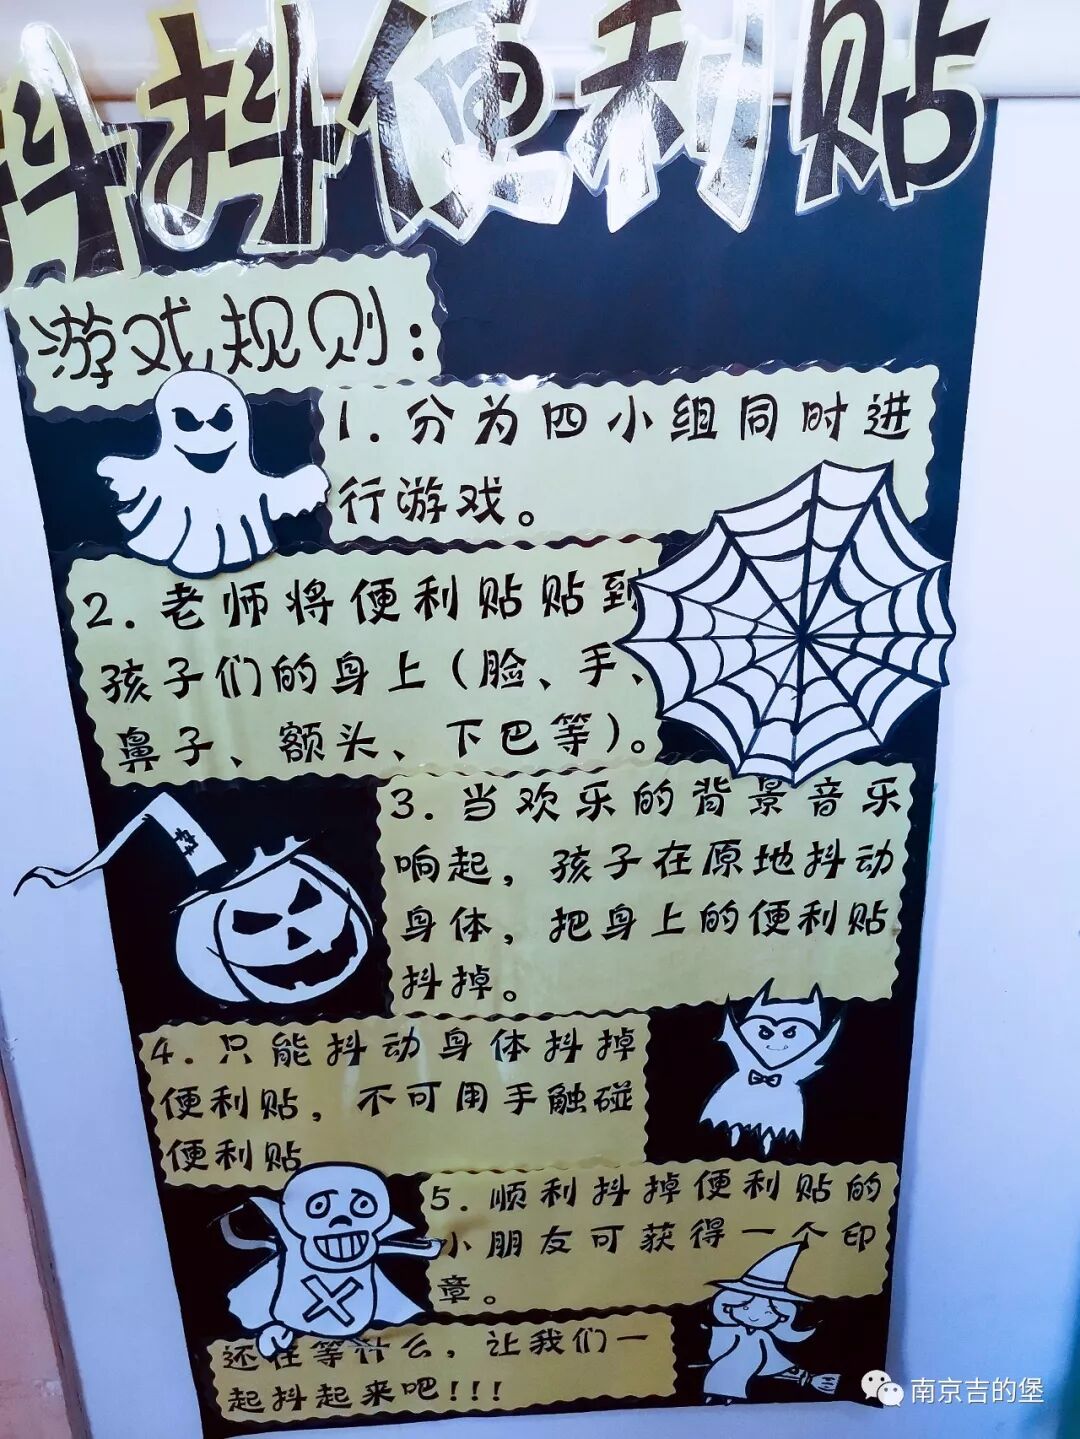 抖抖便利贴
游戏规则：
1.分为四小组同时进
行游戏。
2.老师将便利贴贴到
孩子们的身上（脸、手、
鼻子、额头、下巴等）。
3.当欢乐的背景音乐
响起，孩子在原地抖动
身体，把身上的便利贴
抖掉。
4.只能抖动身体抖掉
便利贴，不可用手触碰
便利贴
5.顺利抖掉便利贴的
小朋友可获得一个印
章。
还在等什么，让我们一
起抖起来吧!!!
南京吉的堡